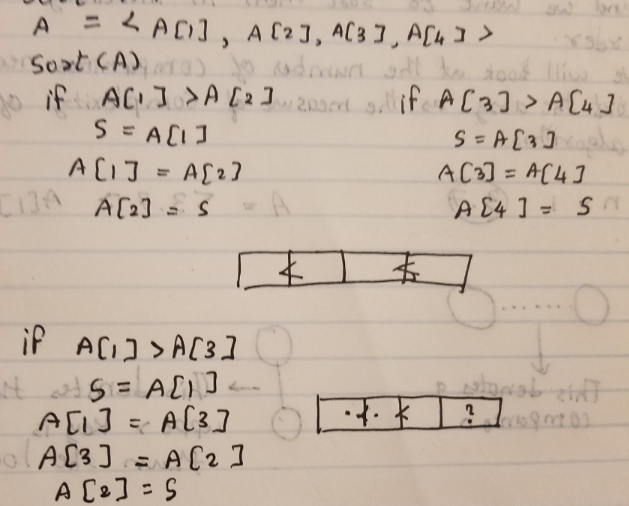 A = < A[1], A[2], A[3], A[4] >
Sort(A)
if A[1] > A[2]
S = A[1]
A[1] = A[2]
A[2] = S
if A[3] > A[4]
S = A[3]
A[3] = A[4]
A[4] = S
< <
if A[1] > A[3]
S = A[1]
A[1] = A[3]
A[3] = A[2]
A[2] = S
< < ?